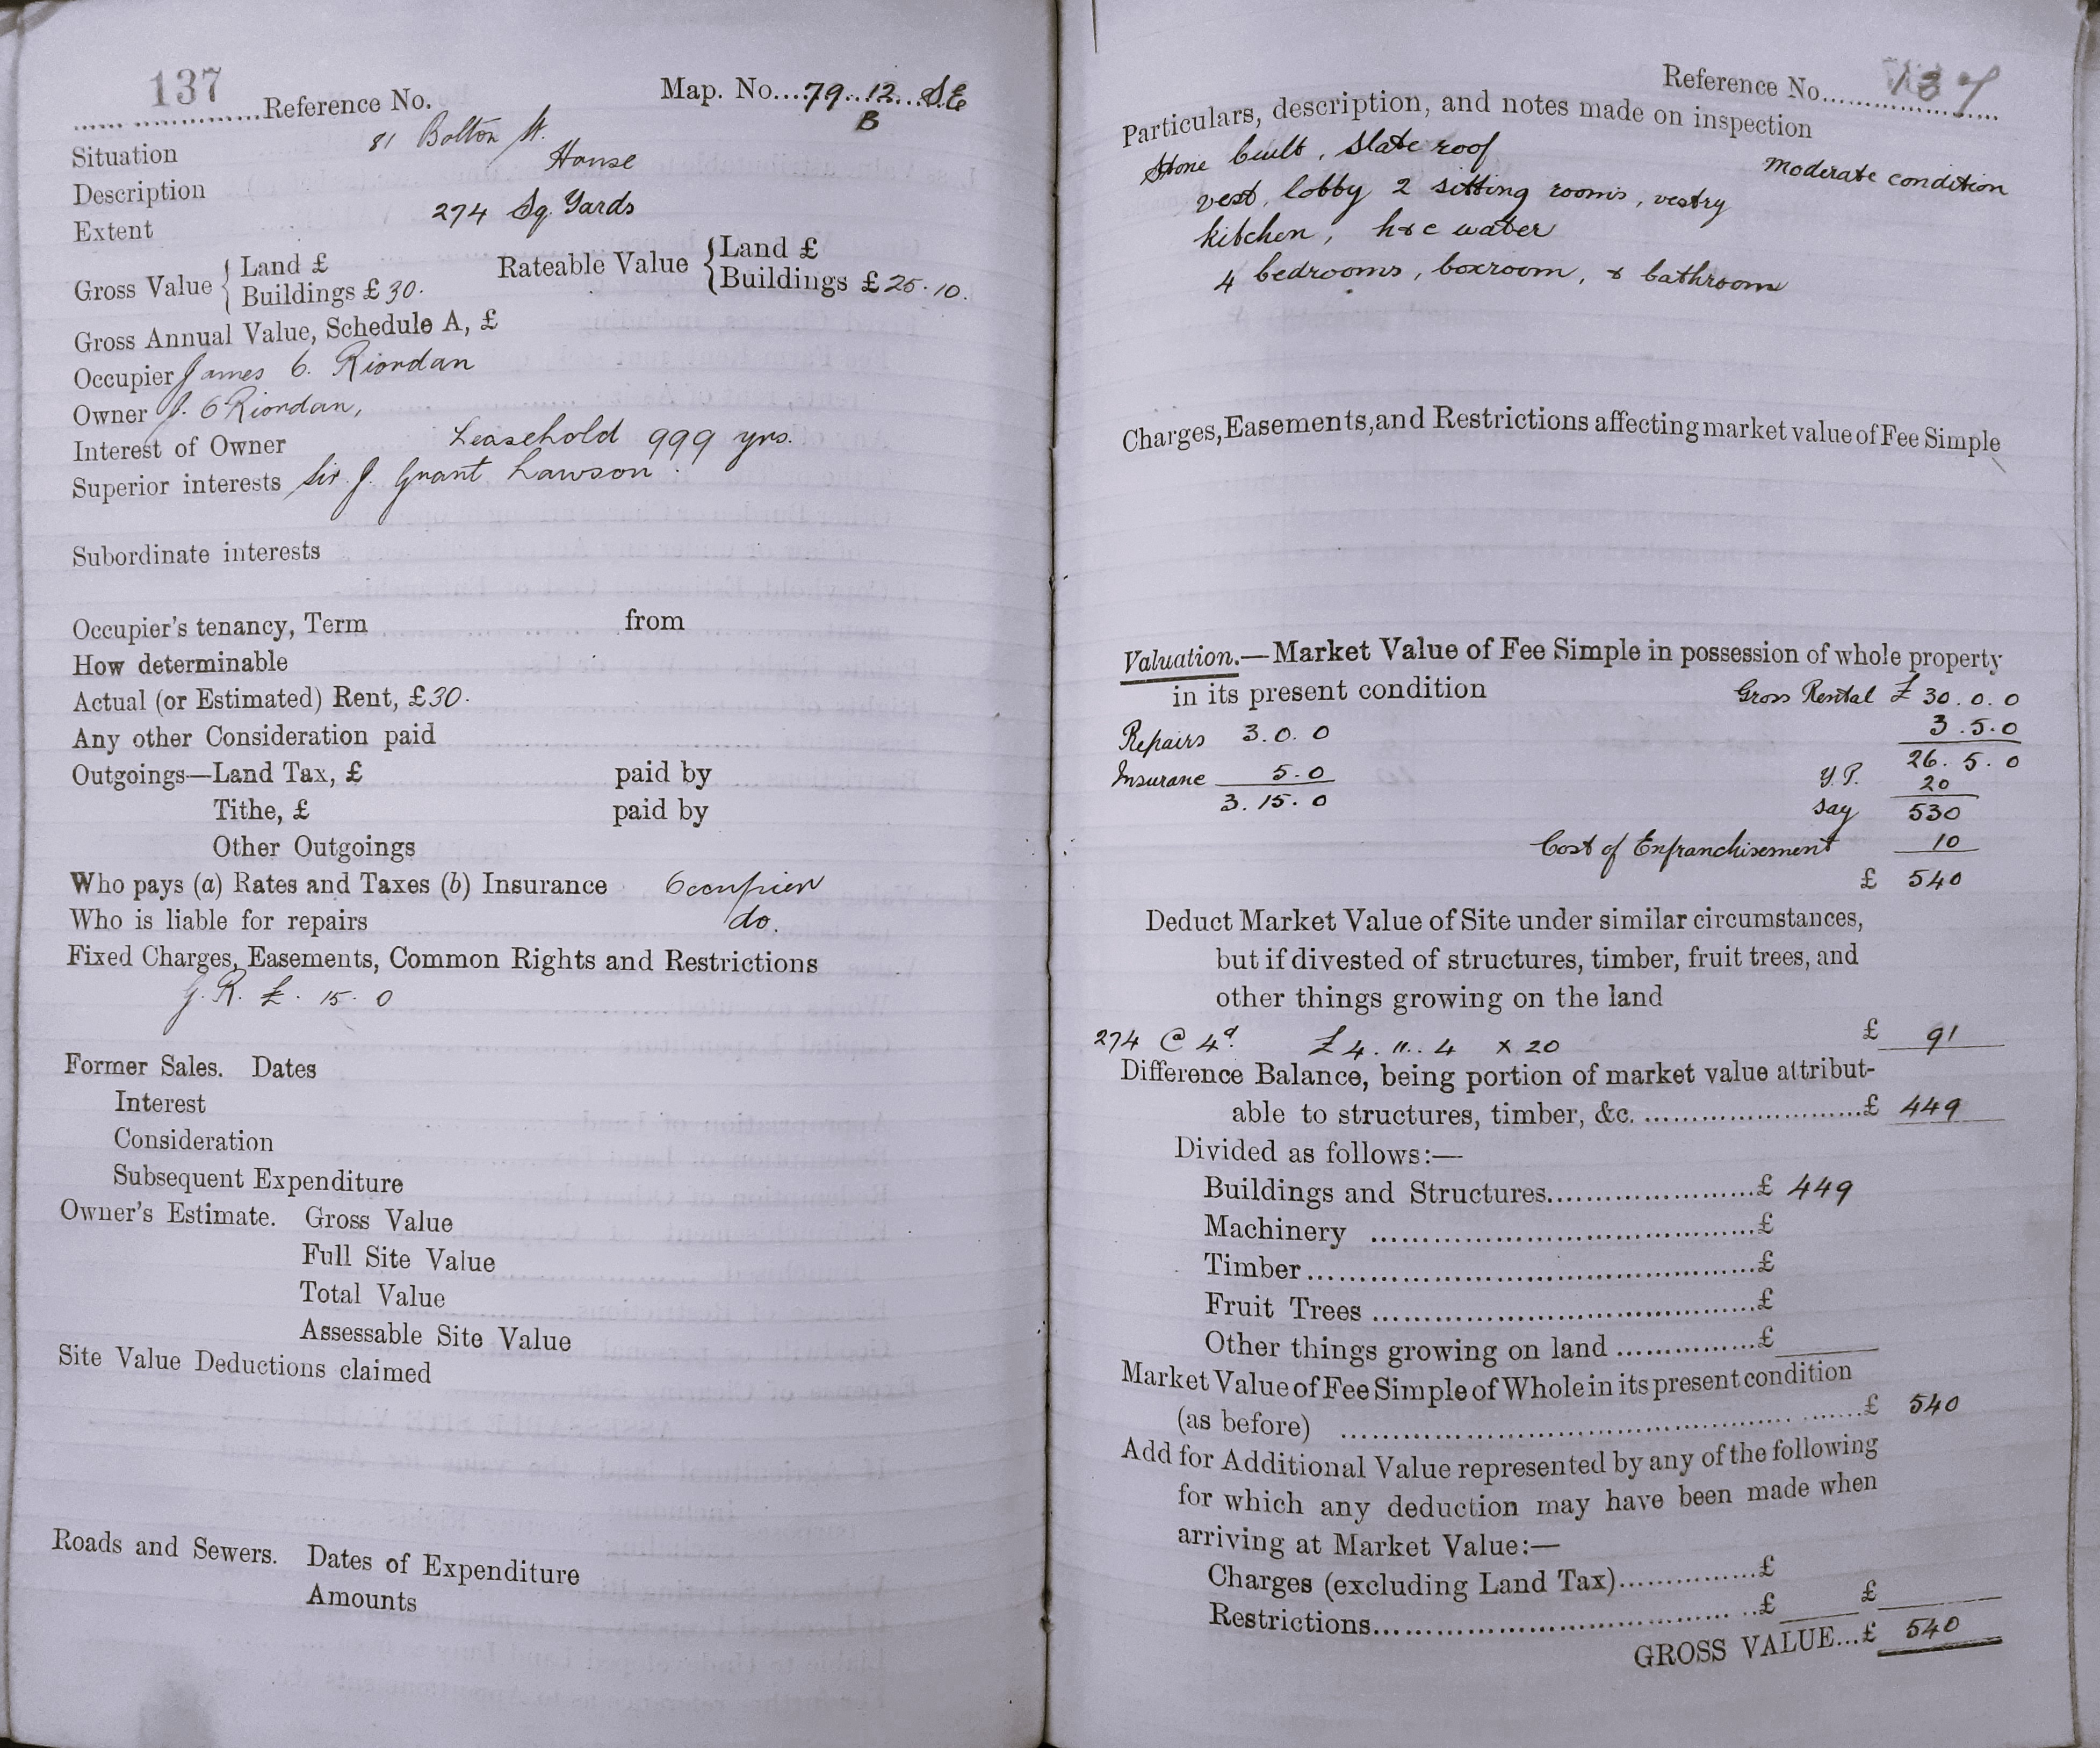 137
Reference No.
Map. No. 79. 12. S.E
B
Situation 81 Bolton St.
Description House
Extent 274 Sq. Yards
Gross Value { Land £
Buildings £ 30.
Rateable Value { Land £
Buildings £ 25. 10.
Gross Annual Value, Schedule A, £
Occupier James O. Riordan
Owner J. O Riordan,
Interest of Owner Leasehold 999 yrs.
Superior interests Sir. J. Grant Lawson.
Subordinate interests
Occupier's tenancy, Term from
How determinable
Actual (or Estimated) Rent, £ 30.
Any other Consideration paid
Outgoings—Land Tax, £ paid by
Tithe, £ paid by
Other Outgoings
Who pays (a) Rates and Taxes (b) Insurance Occupier
Who is liable for repairs do.
Fixed Charges, Easements, Common Rights and Restrictions
G. R. £. 15. 0
Former Sales. Dates
Interest
Consideration
Subsequent Expenditure
Owner's Estimate. Gross Value
Full Site Value
Total Value
Assessable Site Value
Site Value Deductions claimed
Roads and Sewers. Dates of Expenditure
Amounts
Reference No. 137
Particulars, description, and notes made on inspection
Stone built, slate roof Moderate condition
vest, lobby 2 sitting rooms, vestry
kitchen, h & c water
4 bedrooms, boxroom, & bathroom
Charges, Easements, and Restrictions affecting market value of Fee Simple
Valuation.—Market Value of Fee Simple in possession of whole property
in its present condition Gross Rental £ 30. 0. 0
Repairs 3. 0. 0 3. 5. 0
Insurane 5. 0 26. 5. 0
3. 15. 0 Y.P. 20
say 530
Cost of Enfranchisement 10
£ 540
Deduct Market Value of Site under similar circumstances,
but if divested of structures, timber, fruit trees, and
other things growing on the land
274 @ 4d. £ 4. 11. 4 x 20 £ 91
Difference Balance, being portion of market value attribut-
able to structures, timber, &c. £ 449
Divided as follows:—
Buildings and Structures £ 449
Machinery £
Timber £
Fruit Trees £
Other things growing on land £
Market Value of Fee Simple of Whole in its present condition
(as before) £ 540
Add for Additional Value represented by any of the following
for which any deduction may have been made when
arriving at Market Value:—
Charges (excluding Land Tax) £
Restrictions £ £
GROSS VALUE...£ 540